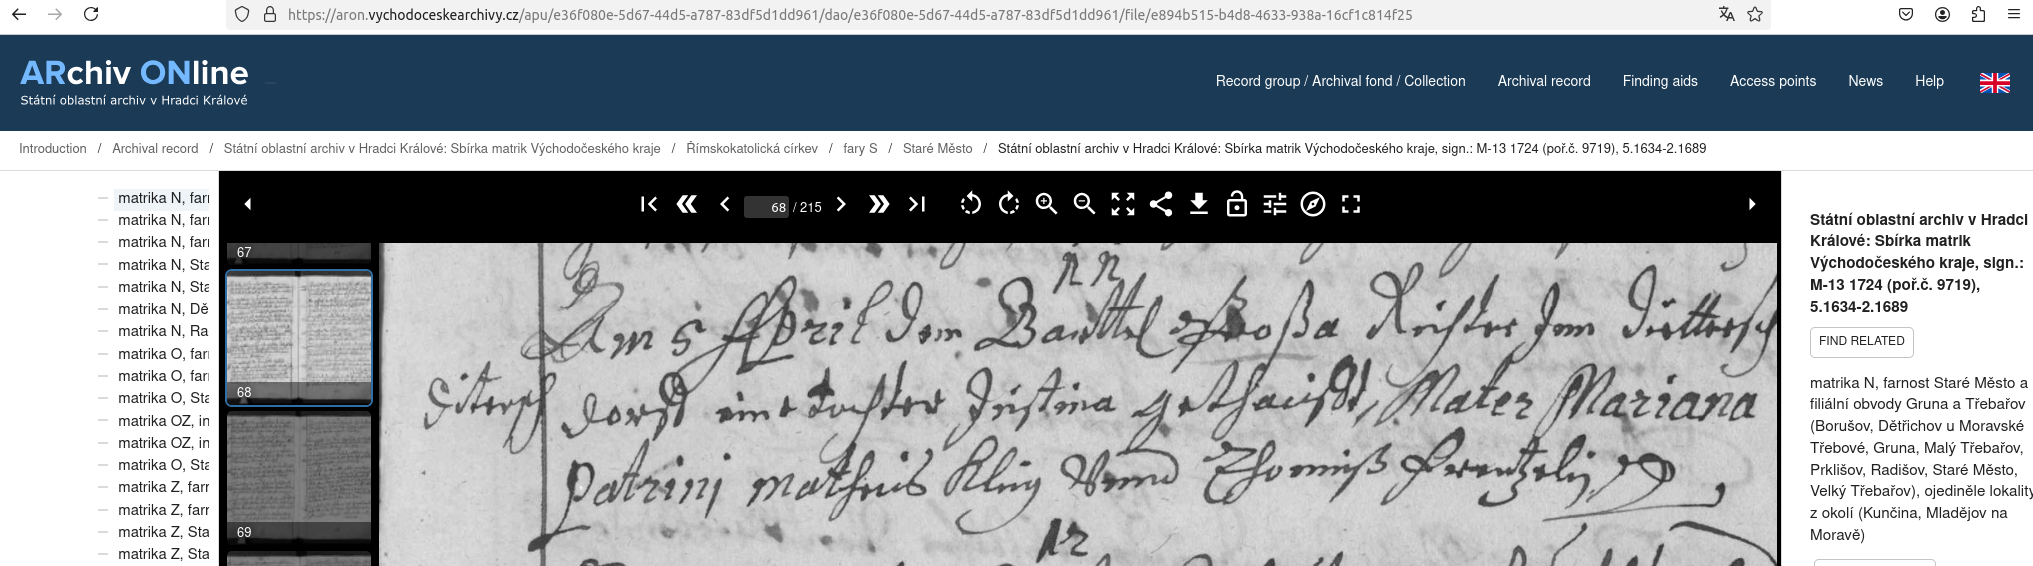 https://aron.vychodoceskearchivy.cz/apu/e36f080e-5d67-44d5-a787-83df5d1dd961/dao/e36f080e-5d67-44d5-a787-83df5d1dd961/file/e894b515-b4d8-4633-938a-16cf1c814f25
ARchiv ONline
Státní oblastní archiv v Hradci Králové
Record group / Archival fond / Collection
Archival record
Finding aids
Access points
News
Help
Introduction / Archival record / Státní oblastní archiv v Hradci Králové: Sbírka matrik Východočeského kraje / Římskokatolická církev / fary S / Staré Město / Státní oblastní archiv v Hradci Králové: Sbírka matrik Východočeského kraje, sign.: M-13 1724 (poř.č. 9719), 5.1634-2.1689
matrika N, farr
matrika N, farr
matrika N, farr
matrika N, Sta
matrika N, Sta
matrika N, Dě
matrika N, Ra
matrika O, farr
matrika O, farr
matrika O, Sta
matrika OZ, in
matrika OZ, in
matrika O, Sta
matrika Z, farr
matrika Z, farr
matrika Z, Sta
matrika Z, Sta
68 / 215
67
68
69
Am 5 April dem Barttel Richter Inn
dorff eine tochter Justina gethaufft, Mater Mariana
Patrini Matheus Klug Vnnd Thomiß
12
Státní oblastní archiv v Hradci
Králové: Sbírka matrik
Východočeského kraje, sign.:
M-13 1724 (poř.č. 9719),
5.1634-2.1689
FIND RELATED
matrika N, farnost Staré Město a
filiální obvody Gruna a Třebařov
(Borušov, Dětřichov u Moravské
Třebové, Gruna, Malý Třebařov,
Prklišov, Radišov, Staré Město,
Velký Třebařov), ojediněle lokality
z okolí (Kunčina, Mladějov na
Moravě)